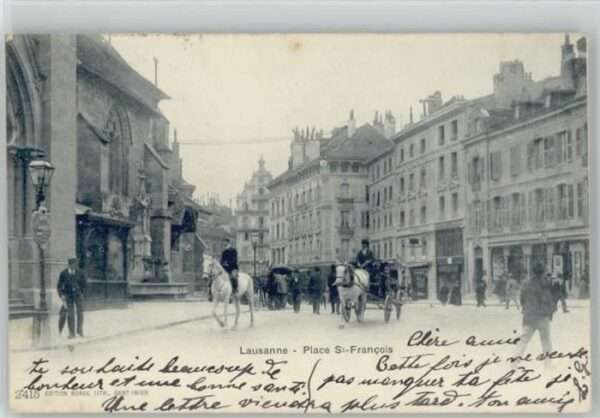 Lausanne - Place St-François
Chère amie
Cette fois je ne veux
pas manquer ta fête je
te souhaite beaucoup de
bonheur et une bonne santé
2415 EDITION BURGY, LITH., SAINT-IMIER
Une lettre viendra plus tard. Ton amie